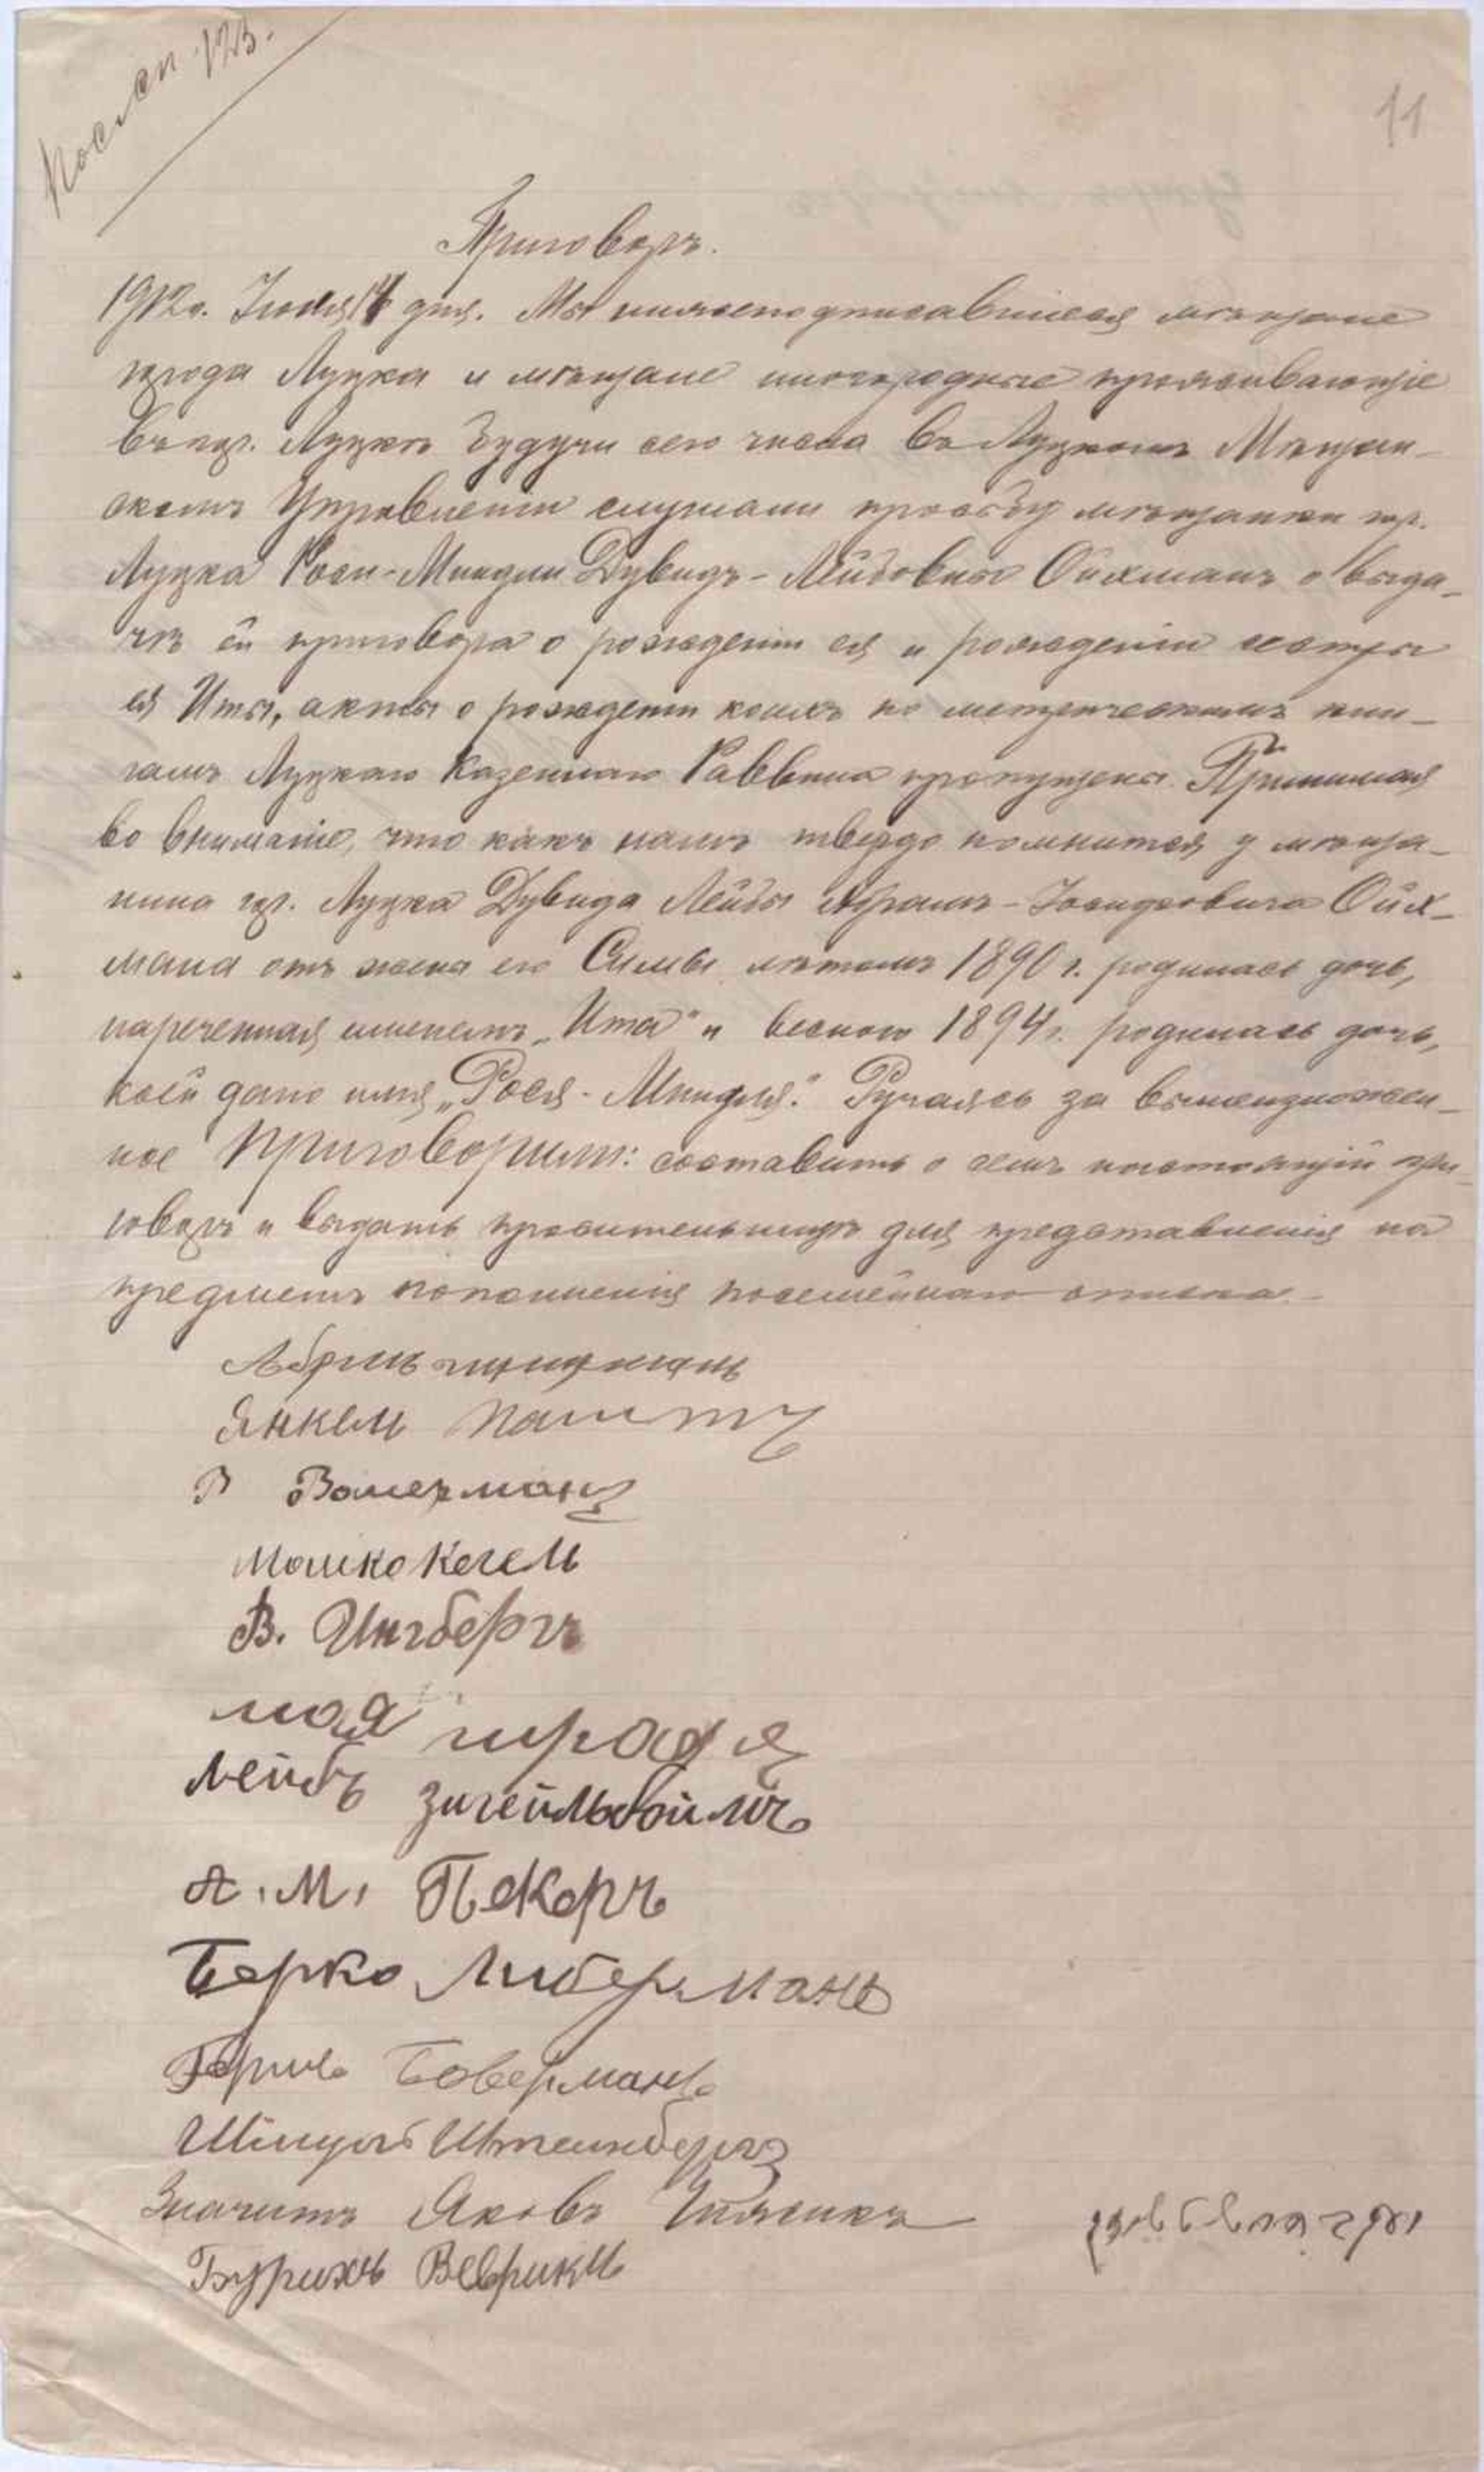 11
Приговоръ.
1912 г. Іюля 14 дня. Мы нижеподписавшіеся мѣщане
города Луцка и мѣщане иногородные проживающіе
въ гор. Луцкѣ будучи сего числа въ Луцкомъ Мѣщан-
скомъ Управленіи слушали просьбу мѣщанки гор.
Луцка Роси-Миндли Дувидъ-Лейбовны Ойхманъ о выда-
чѣ ей приговора о рожденіи ея и рожденіи сестры
ея Иты, акты о рожденіи коихъ по метрическимъ кни-
гамъ Луцкаго Казеннаго Раввина пропущены. Принимая
во вниманіе, что какъ намъ твердо помнится, у мѣща-
нина гор. Луцка Дувида Лейбы Абрамъ-Іосифовича Ойх-
мана отъ жены его Симы лѣтомъ 1890 г. родилась дочь,
нареченная именемъ „Ита" и весною 1894 г. родилась дочь,
коей дано имя „Рося-Миндля". Ручаясь за вышеизложен-
ное приговорили: составить о семъ настоящій при-
говоръ и выдать просительницѣ для представленія на
предметъ пополненія посемейнаго списка.
Янкель
В Вамерманъ
Мошко Кегель
В. Ингберъ
Лейбъ Зигельбоймъ
А. М. Пекеръ
Берко Либерманъ
Гершъ Боверманъ
Штейнбергъ
Значитъ Яковъ
Бурихъ Веврикъ